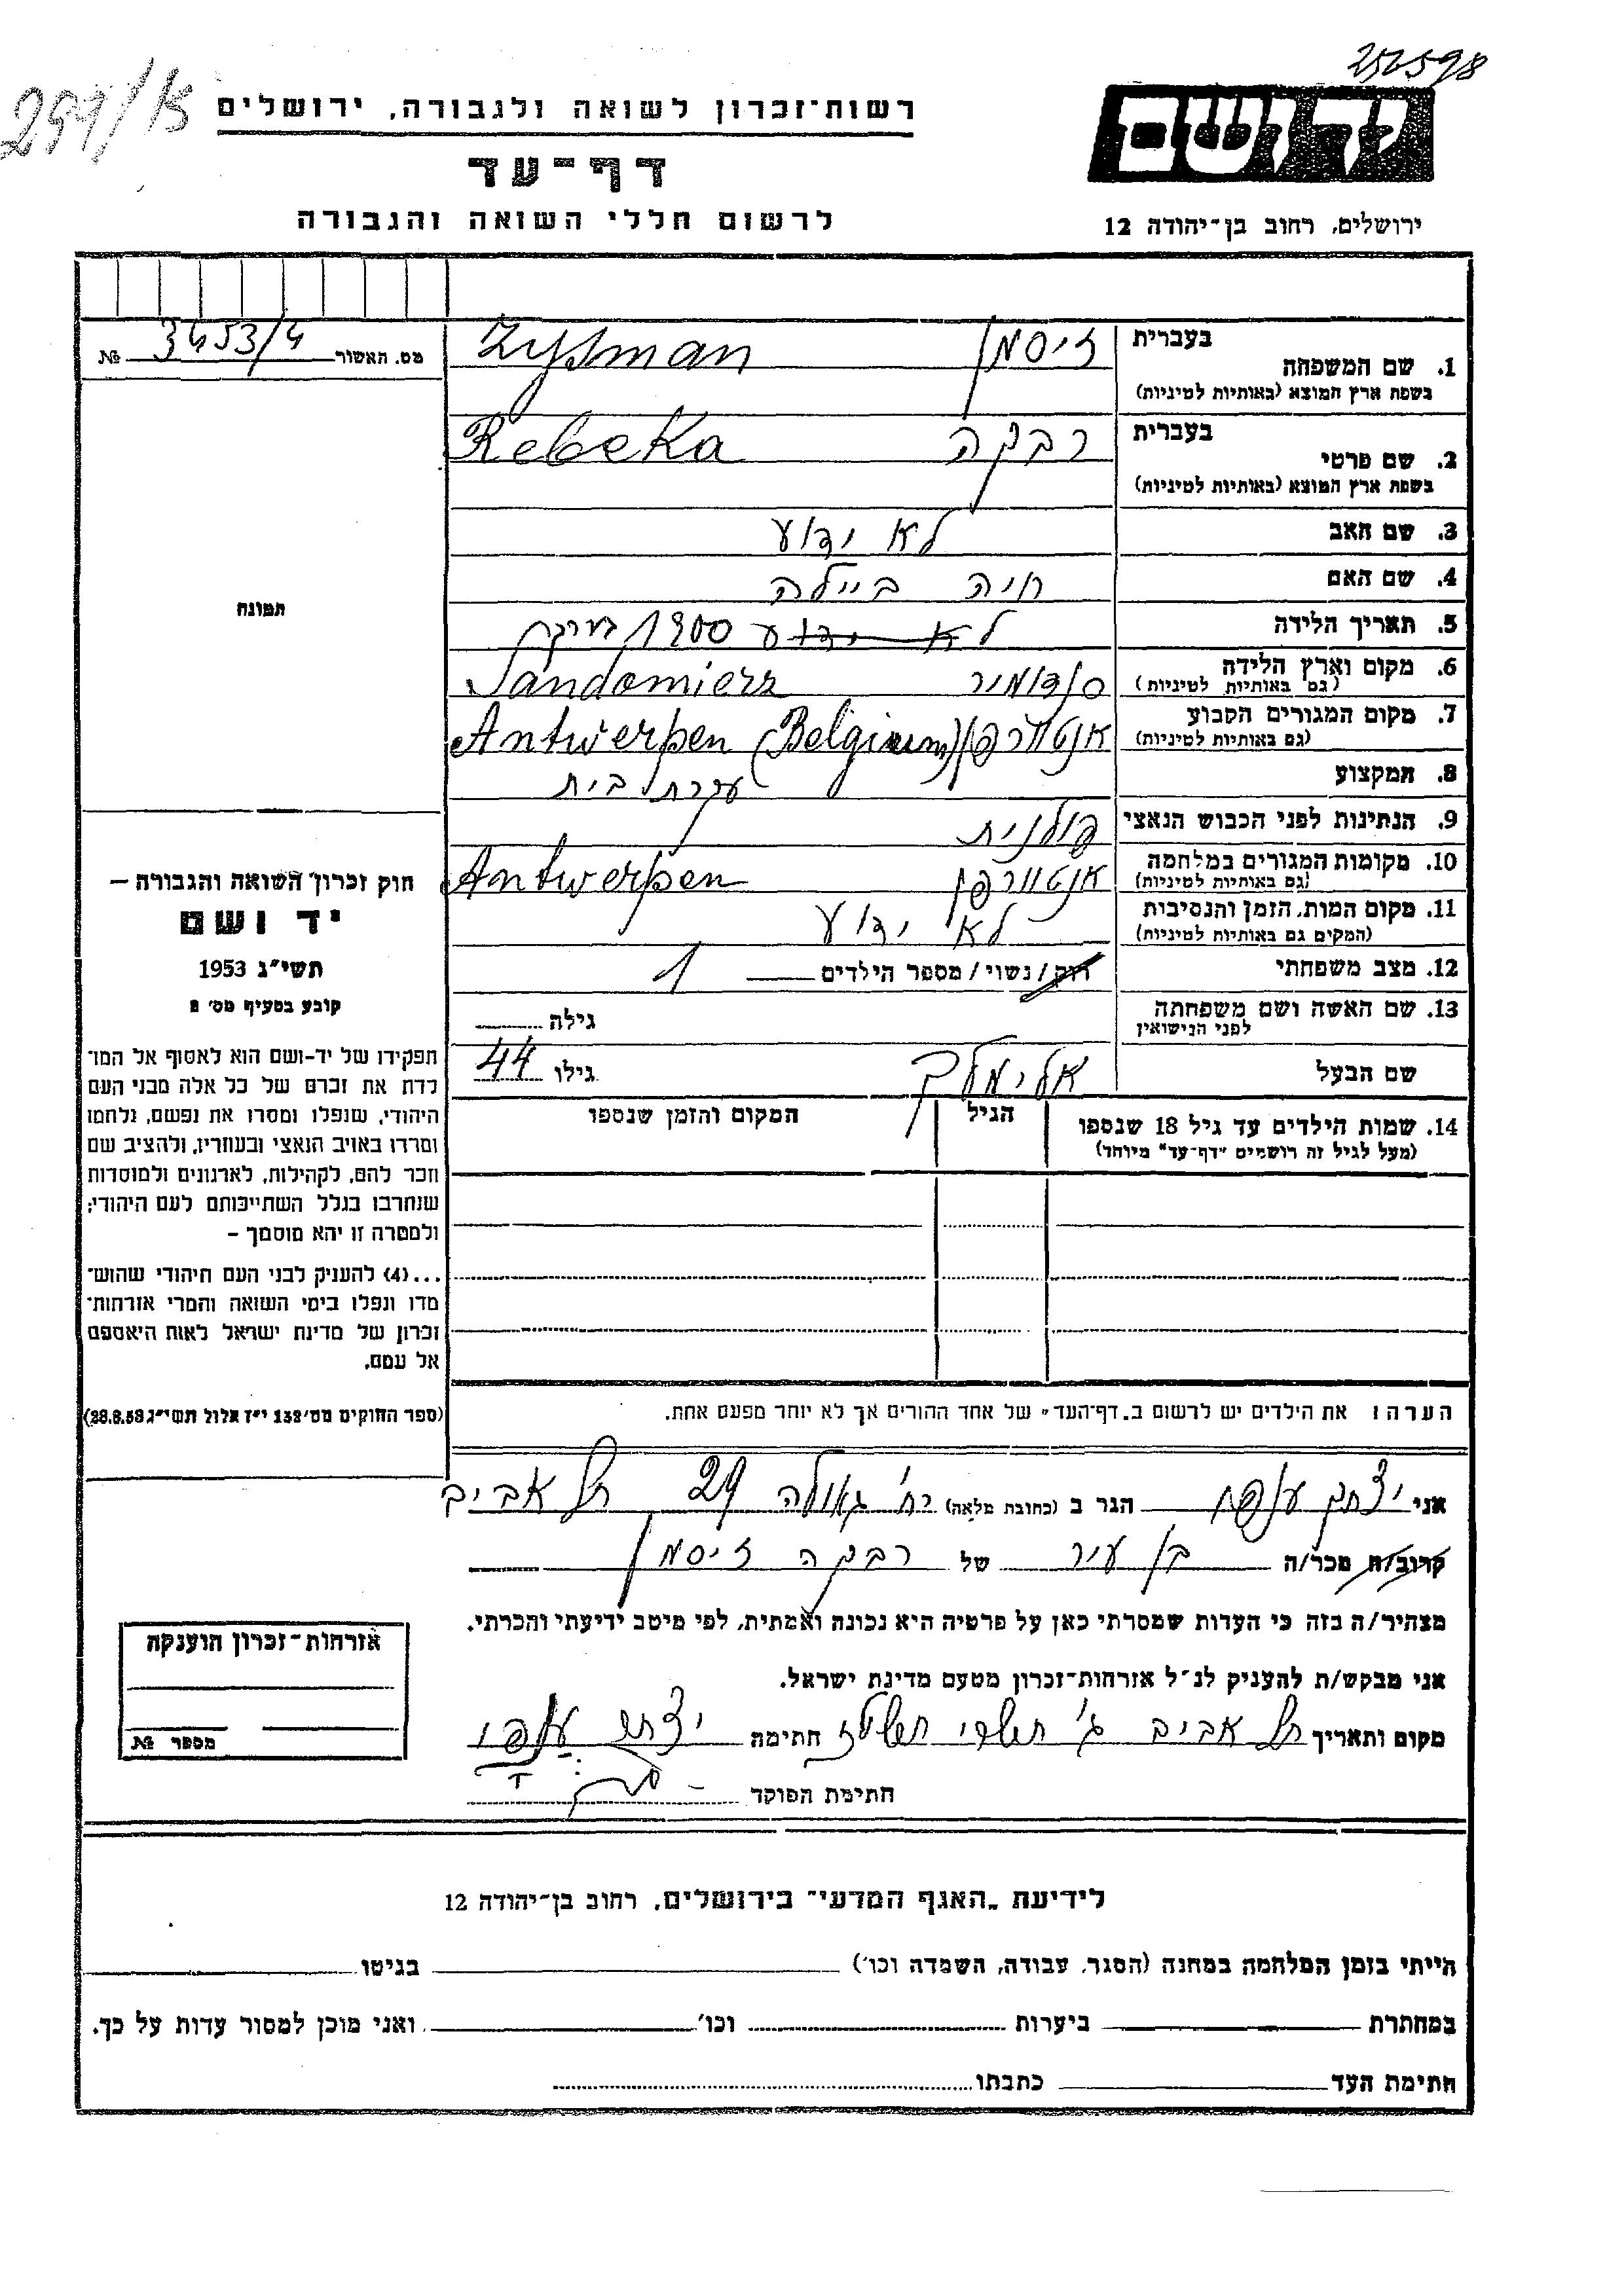 252598
297/15
רשות־זכרון לשואה ולגבורה, ירושלים
דף־עד
לרשום חללי השואה והגבורה
יד ושם
ירושלים, רחוב בן־יהודה 12
מס. האשור 3453/4 №
1. שם המשפחה בעברית זיסמן Zysman
בשפת ארץ המוצא (באותיות לטיניות)
2. שם פרטי בעברית רבקה Rebeka
בשפת ארץ המוצא (באותיות לטיניות)
3. שם האב לא ידוע
4. שם האם חיה ביילה
5. תאריך הלידה לא ידוע 1900
6. מקום וארץ הלידה סנדומיר Sandomierz
(גם באותיות לטיניות)
7. מקום המגורים הקבוע אנטוורפן Antwerpen (Belgium)
(גם באותיות לטיניות)
8. המקצוע עקרת בית
9. הנתינות לפני הכבוש הנאצי פולנית
10. מקומות המגורים במלחמה אנטוורפן Antwerpen
(גם באותיות לטיניות)
11. מקום המות, הזמן והנסיבות לא ידוע
(המקום גם באותיות לטיניות)
12. מצב משפחתי רווק/נשוי/מספר הילדים 1
13. שם האשה ושם משפחתה לפני הנישואין גילה
שם הבעל אלימלך גילו 44
14. שמות הילדים עד גיל 18 שנספו הגיל המקום והזמן שנספו
(מעל לגיל זה רושמים "דף־עד" מיוחד)
הערה: את הילדים יש לרשום ב"דף־העד" של אחד ההורים אך לא יותר מפעם אחת.
תמונה
חוק זכרון השואה והגבורה —
יד ושם
תשי״ג 1953
קובע בסעיף מס׳ 2
תפקידו של יד-ושם הוא לאסוף אל המו־
לדת את זכרם של כל אלה מבני העם
היהודי, שנפלו ומסרו את נפשם, נלחמו
ומרדו באויב הנאצי ובעוזריו, ולהציב שם
וזכר להם, לקהילות, לארגונים ולמוסדות
שנחרבו בגלל השתייכותם לעם היהודי;
ולמטרה זו יהא מוסמך –
...(4) להעניק לבני העם היהודי שהוש־
מדו ונפלו בימי השואה והמרי אזרחות־
זכרון של מדינת ישראל לאות היאספם
אל עמם.
(ספר החוקים מס׳ 132 י״ז אלול תשי״ג 28.8.53)
אני יצחק הגר ב (כתובת מלאה) רח׳ גאולה 29 תל אביב
קרוב/ה מכר/ה בן עיר של רבקה זיסמן
מצהיר/ה בזה כי העדות שמסרתי כאן על פרטיה היא נכונה ואמתית, לפי מיטב ידיעתי והכרתי.
אני מבקש/ת להעניק לנ״ל אזרחות־זכרון מטעם מדינת ישראל.
מקום ותאריך תל אביב ג׳ תשרי חתימה יצחק
חתימת הפוקד
אזרחות־זכרון הוענקה
מספר №
לידיעת „האגף המדעי״ בירושלים, רחוב בן־יהודה 12
הייתי בזמן המלחמה במחנה (הסגר, עבודה, השמדה וכו׳) בגיטו
במחתרת ביערות וכו׳ ואני מוכן למסור עדות על כך.
חתימת העד כתבתו